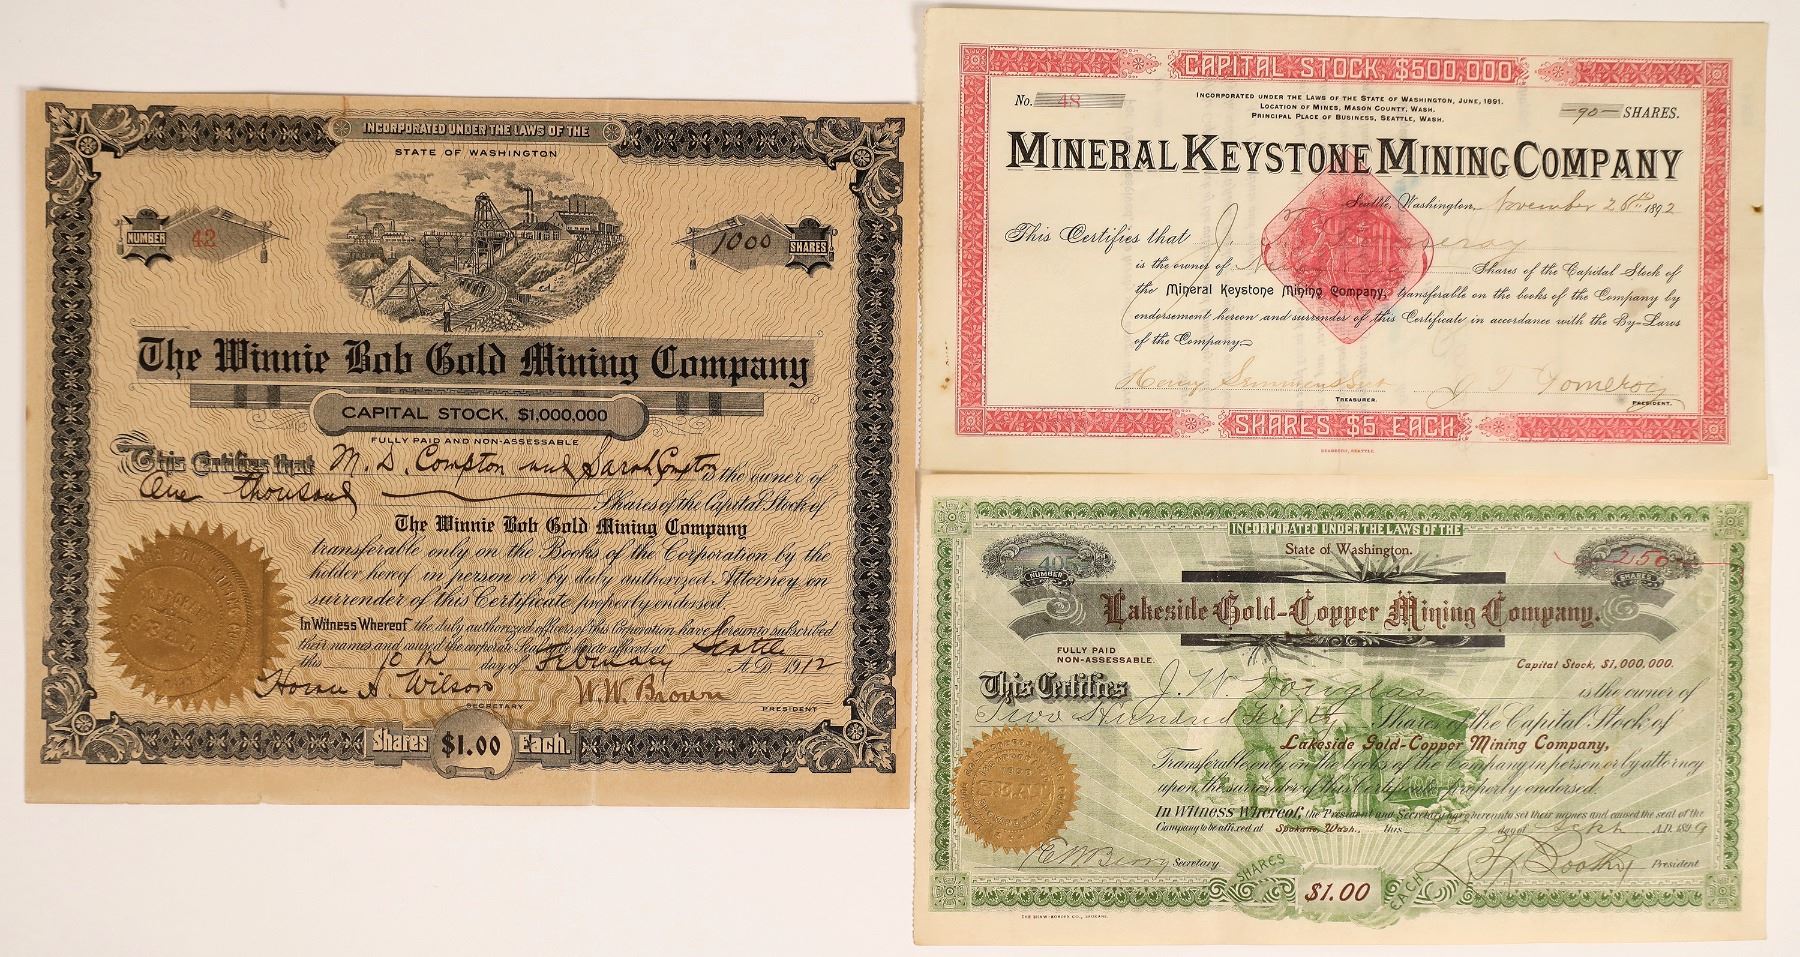 INCORPORATED UNDER THE LAWS OF THE
STATE OF WASHINGTON
NUMBER 42
1000 SHARES
The Winnie Bob Gold Mining Company
CAPITAL STOCK, $1,000,000
FULLY PAID AND NON-ASSESSABLE
This Certifies that M. D. Compton and Sarah Compton is the owner of
One thousand Shares of the Capital Stock of
The Winnie Bob Gold Mining Company
transferable only on the Books of the Corporation by the
holder hereof in person or by duly authorized Attorney on
surrender of this Certificate properly endorsed.
In Witness Whereof the duly authorized officers of this Corporation have hereunto subscribed
their names and caused the corporate Seal to be hereto affixed at Seattle
this 10th day of February A.D. 1912
A. Wilson
SECRETARY
W. W. Brown
PRESIDENT
Shares $1.00 Each.
CAPITAL STOCK $500,000
No. 48
INCORPORATED UNDER THE LAWS OF THE STATE OF WASHINGTON, JUNE, 1891.
LOCATION OF MINES, MASON COUNTY, WASH.
PRINCIPAL PLACE OF BUSINESS, SEATTLE, WASH.
90 SHARES.
MINERAL KEYSTONE MINING COMPANY
Seattle, Washington, November 26th 1892
This Certifies that J. T. Pomeroy
is the owner of Shares of the Capital Stock of
the Mineral Keystone Mining Company, transferable on the books of the Company by
endorsement hereon and surrender of this Certificate in accordance with the By-Laws
of the Company
Henry
TREASURER.
J T Pomeroy
PRESIDENT.
SHARES $5 EACH
INCORPORATED UNDER THE LAWS OF THE
State of Washington.
NUMBER
250
SHARES
Lakeside Gold-Copper Mining Company.
FULLY PAID
NON-ASSESSABLE.
Capital Stock, $1,000,000.
This Certifies J. W. Douglas is the owner of
Two Hundred Fifty Shares of the Capital Stock of
Lakeside Gold-Copper Mining Company,
Transferable only on the books of the Company in person or by attorney
upon the surrender of this Certificate properly endorsed.
In Witness Whereof, the President and Secretary have hereunto set their names and caused the seal of the
Company to be affixed at Spokane, Wash., this day of Sept A.D. 1899
Secretary
President
SHARES $1.00 EACH
THE SHAW-BORDEN CO., SPOKANE.